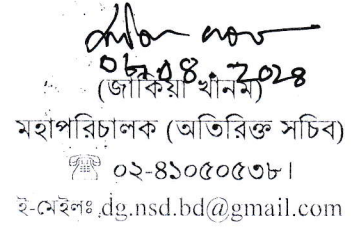 ০৮.০৪.২০২৪
(জাকিয়া খানম)
মহাপরিচালক (অতিরিক্ত সচিব)
☎ ০২-৪১০৫০৫৩৮।
ই-মেইলঃ dg.nsd.bd@gmail.com